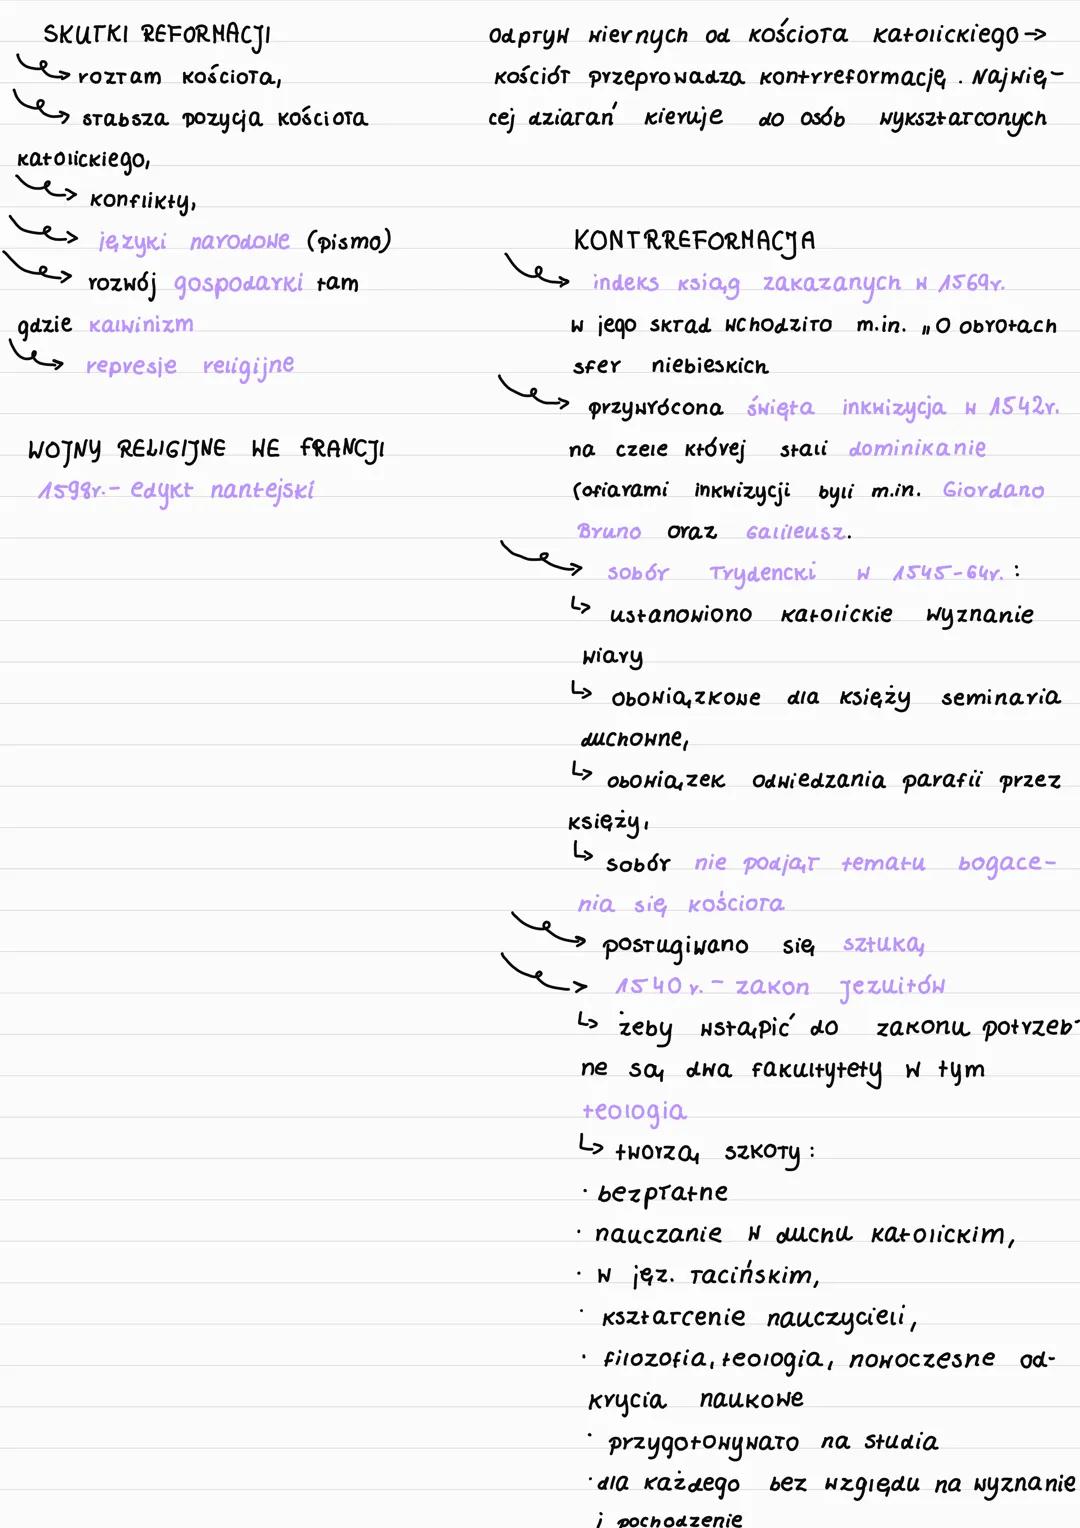 SKUTKI REFORMACJI
rozłam kościoła,
słabsza pozycja kościoła
katolickiego,
konflikty,
języki narodowe (pismo)
rozwój gospodarki tam
gdzie kalwinizm
represje religijne
WOJNY RELIGIJNE WE FRANCJI
1598r.- edykt nantejski
odpływ wiernych od kościoła katolickiego →
kościół przeprowadza kontrreformację. Najwię-
cej działań kieruje do osób wykształconych
KONTRREFORMACJA
indeks ksiąg zakazanych w 1569r.
w jego skład wchodziło m.in. „O obrotach
sfer niebieskich
przywrócona święta inkwizycja w 1542r.
na czele której stali dominikanie
(ofiarami inkwizycji byli m.in. Giordano
Bruno oraz Galileusz.
sobór Trydencki w 1545-64r. :
↳ ustanowiono katolickie wyznanie
wiary
↳ obowiązkowe dla księży seminaria
duchowne,
↳ obowiązek odwiedzania parafii przez
księży,
↳ sobór nie podjął tematu bogace-
nia się kościoła
posługiwano się sztuką
1540 r. - zakon Jezuitów
↳ żeby wstąpić do zakonu potrzeb-
ne są dwa fakultytety w tym
teologia
↳ tworzą szkoły :
· bezpłatne
· nauczanie w duchu katolickim,
· w jęz. łacińskim,
· kształcenie nauczycieli,
· filozofia, teologia, nowoczesne od-
krycia naukowe
· przygotowywało na studia
· dla każdego bez względu na wyznanie
i pochodzenie